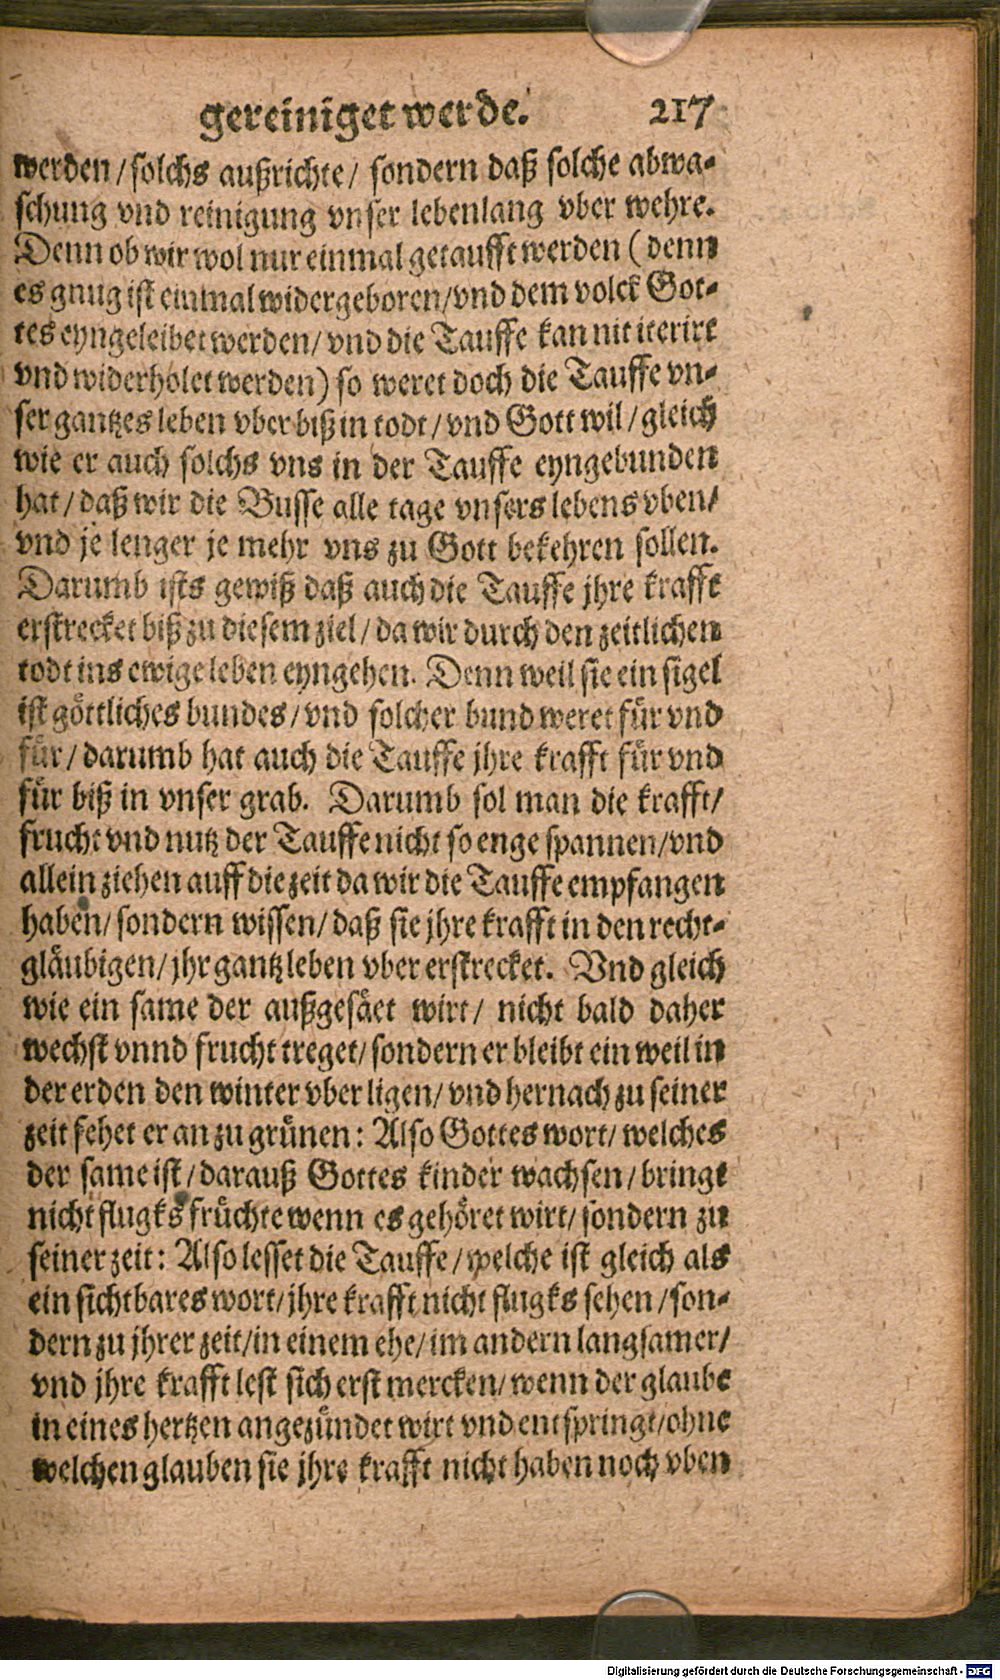 gereiniget werde. 217
werden / solchs außrichte / sondern daß solche abwa-
schung vnd reinigung vnser lebenlang vber wehre.
Denn ob wir wol nur einmal getaufft werden ( denn
es gnug ist einmal widergeboren / vnd dem volck Got-
tes eyngeleibet werden / vnd die Tauffe kan nit iterirt
vnd widerholet werden ) so weret doch die Tauffe vn-
ser gantzes leben vber biß in todt / vnd Gott wil / gleich
wie er auch solchs vns in der Tauffe eyngebunden
hat / daß wir die Busse alle tage vnsers lebens vben /
vnd je lenger je mehr vns zu Gott bekehren sollen.
Darumb ists gewiß daß auch die Tauffe jhre krafft
erstrecket biß zu diesem ziel / da wir durch den zeitlichen
todt ins ewige leben eyngehen. Denn weil sie ein sigel
ist göttliches bundes / vnd solcher bund weret für vnd
für / darumb hat auch die Tauffe jhre krafft für vnd
für biß in vnser grab. Darumb sol man die krafft /
frucht vnd nutz der Tauffe nicht so enge spannen / vnd
allein ziehen auff die zeit da wir die Tauffe empfangen
haben / sondern wissen / daß sie jhre krafft in den recht-
gläubigen / jhr gantz leben vber erstrecket. Vnd gleich
wie ein same der außgesäet wirt / nicht bald daher
wechst vnnd frucht treget / sondern er bleibt ein weil in
der erden den winter vber ligen / vnd hernach zu seiner
zeit fehet er an zu grünen : Also Gottes wort / welches
der same ist / darauß Gottes kinder wachsen / bringt
nicht flugks früchte wenn es gehöret wirt / sondern zu
seiner zeit : Also lesset die Tauffe / welche ist gleich als
ein sichtbares wort / jhre krafft nicht flugks sehen / son-
dern zu jhrer zeit / in einem ehe / im andern langsamer /
vnd jhre krafft lest sich erst mercken / wenn der glaube
in eines hertzen angezündet wirt vnd entspringt / ohne
welchen glauben sie jhre krafft nicht haben noch vben
Digitalisierung gefördert durch die Deutsche Forschungsgemeinschaft - DFG